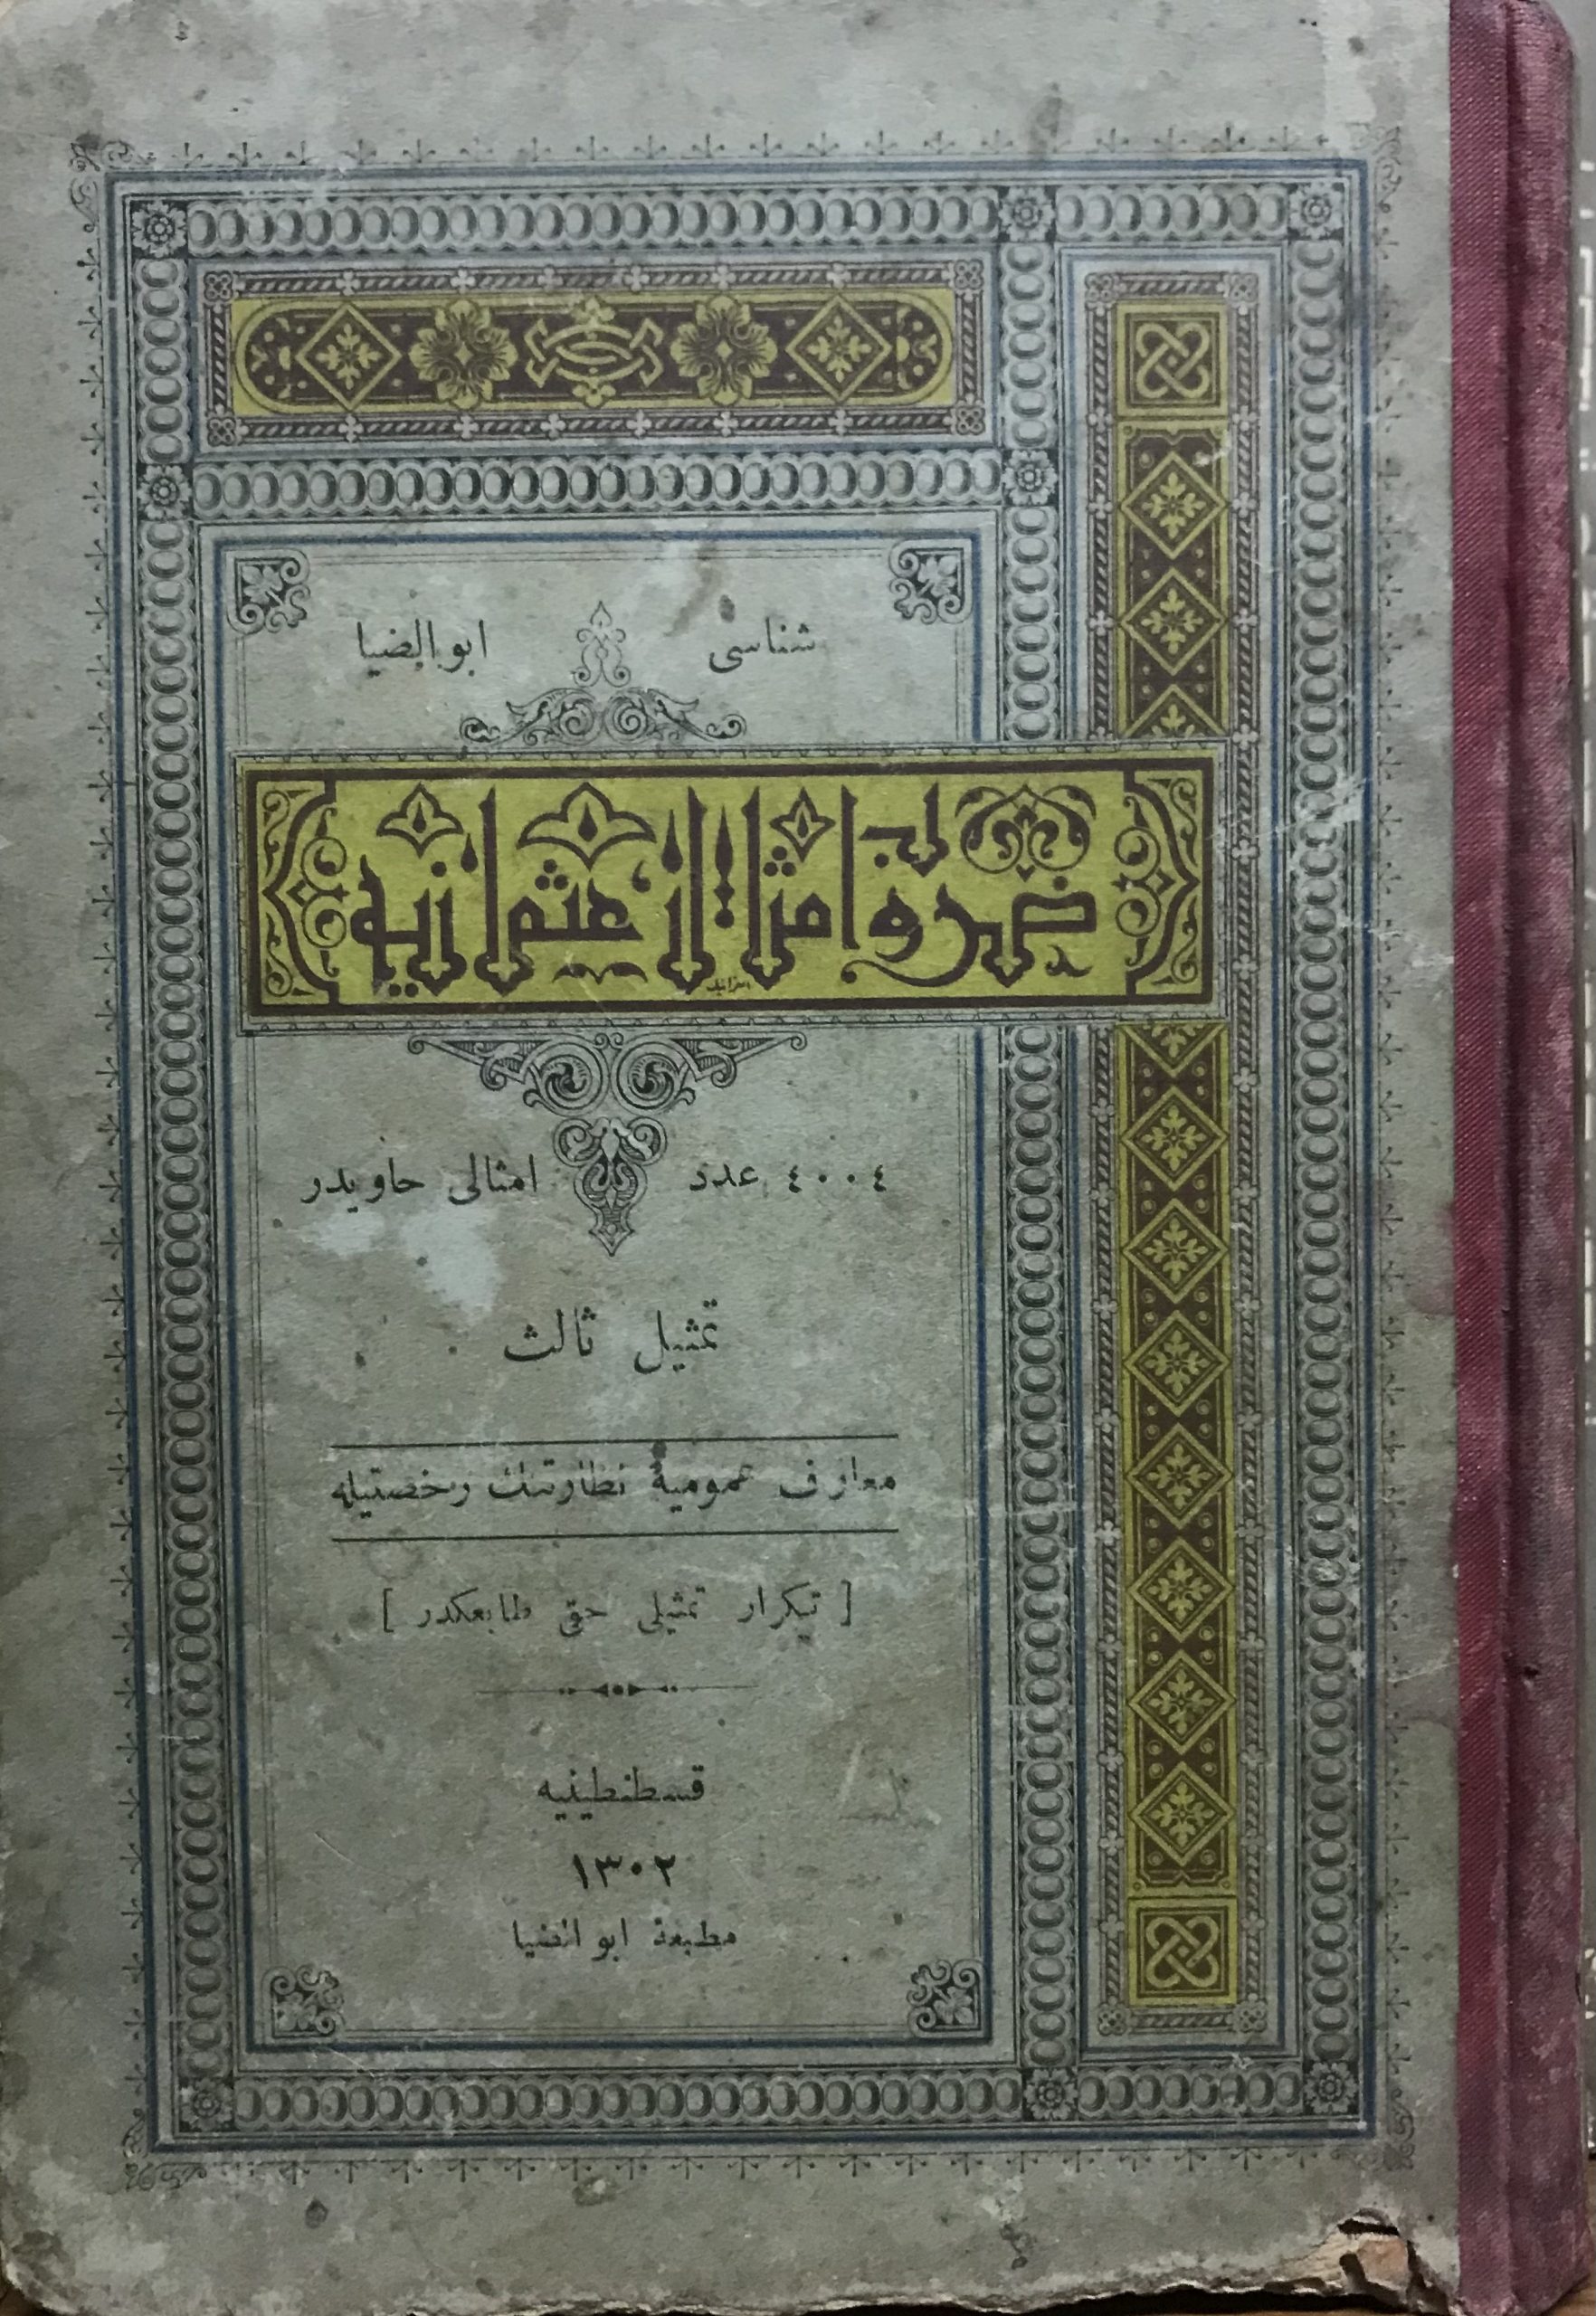 شناسی ابوالضیا
ضروب امثال عثمانیه
٤٠٠٤ عدد امثالی حاویدر
تمثیل ثالث
معارف عمومیهٔ نظارتنك رخصتیله
[ تیکرار تمثیلی حق طابعکدر ]
قسطنطینیه
١٣٠٢
مطبعهٔ ابوالضیا